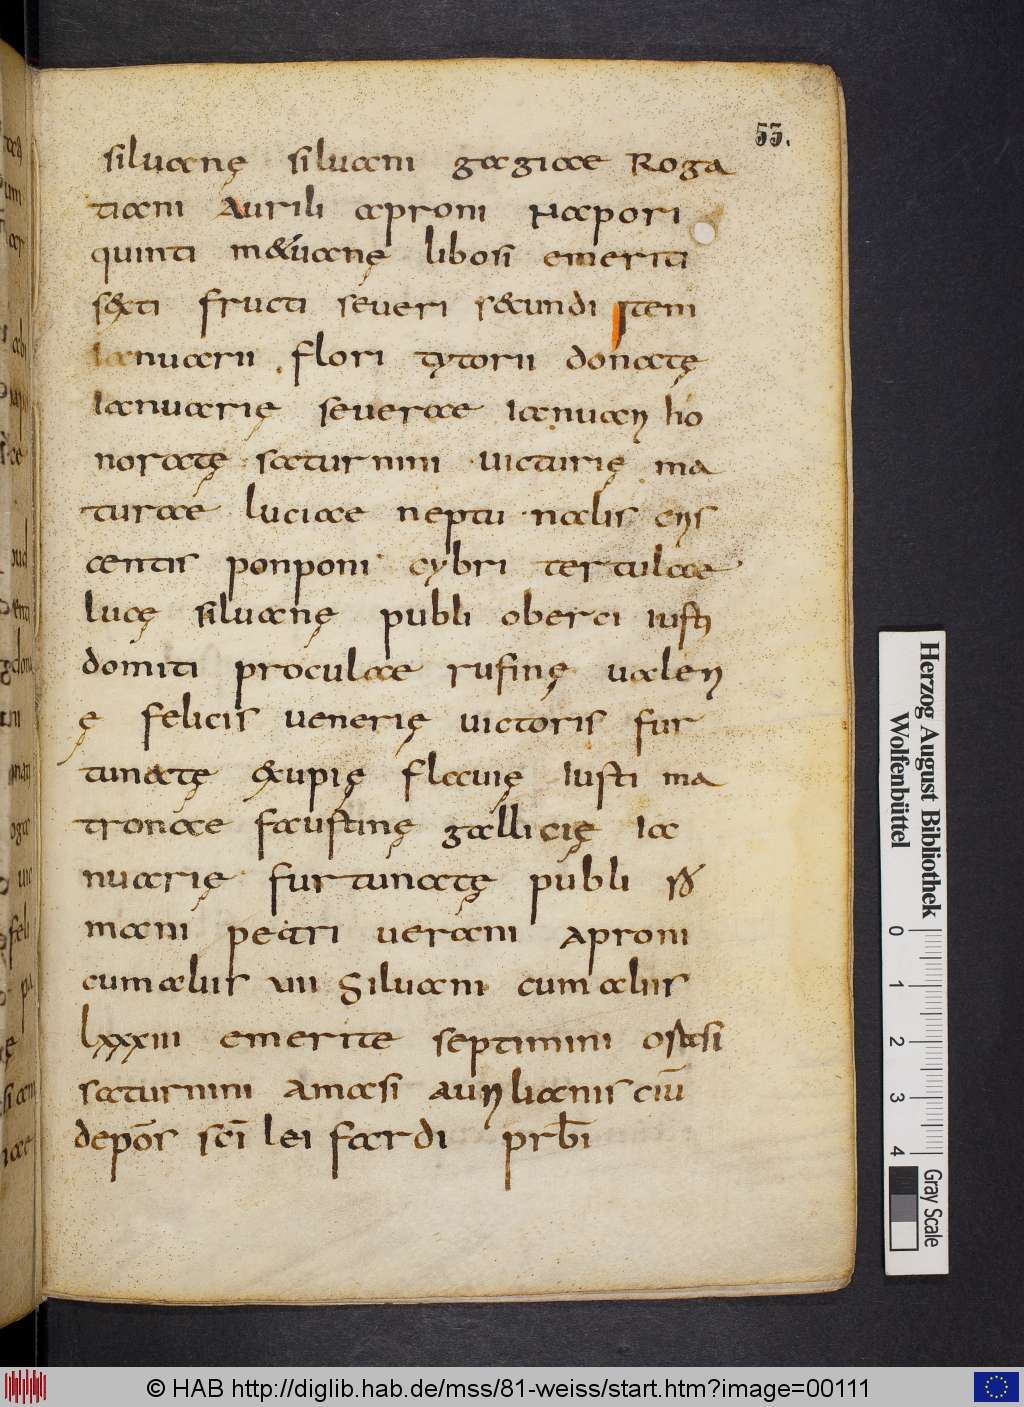 53.
siluanę siluani gagiae Roga
tiani Aurili aproni Napori
quinti m&uanę libosi emeriti
s&cti fructi seueri s&cundi Item
Ianuarii flori tytorii donatę
Ianuarię seuerae Ianuarı ho
noratę saturnini uicturię ma
turae luciae neptu nalis cris
centis ponponi cybri tertulae
lucę siluanę publi oberci iusti
domiti proculae rufinę ualeri
ę felicis uenerię uictoris fur
tunatę &cupię flauię iusti ma
tronae faustinę gallicię Ia
nuarię furtunatę publi ro
mani petri uerani Aproni
cum aliis viii Siluani cum aliis
lxxxiii emerite septimini ostasi
saturnini Amasi aurilianis ciū
depōs sc̄i lei fardi prb̄i
Herzog August Bibliothek
Wolfenbüttel
0 1 2 3 4
Gray Scale
© HAB http://diglib.hab.de/mss/81-weiss/start.htm?image=00111